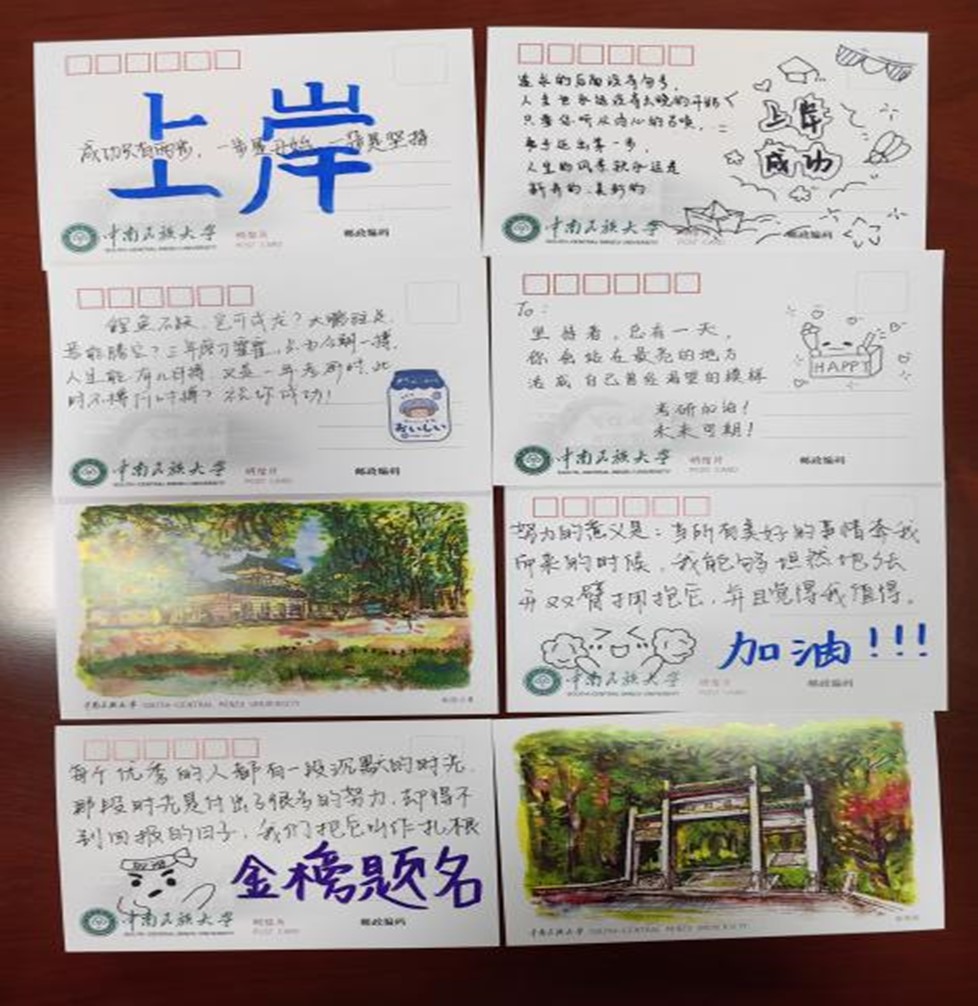 上岸
成功只有两步，一步是开始，一步是坚持
中南民族大学
SOUTH-CENTRAL MINZU UNIVERSITY
明信片
POST CARD
邮政编码
追求的后面没有句号，
人生也永远没有太晚的开始
只要你听从内心的召唤，
勇于迈出第一步，
人生的风景就永远是
新奇的、美妙的
上岸
成功
中南民族大学
SOUTH-CENTRAL MINZU UNIVERSITY
明信片
POST CARD
邮政编码
鲤鱼不跃，岂可成龙？大鹏驻足，
焉能腾空？三年磨刀霍霍，只为今朝一搏。
人生能有几回搏，又是一年考研时，此
时不搏何时搏？祝你成功！
おいしい
中南民族大学
SOUTH-CENTRAL MINZU UNIVERSITY
明信片
POST CARD
邮政编码
To：
坚持着，总有一天，
你会站在最亮的地方
活成自己曾经渴望的模样
考研加油！
未来可期！
HAPPY
中南民族大学
SOUTH-CENTRAL MINZU UNIVERSITY
明信片
POST CARD
邮政编码
中南民族大学 SOUTH-CENTRAL MINZU UNIVERSITY
努力的意义是：当所有美好的事情奔我
而来的时候，我能够坦然地张
开双臂拥抱它，并且觉得我值得。
加油!!!
中南民族大学
SOUTH-CENTRAL MINZU UNIVERSITY
明信片
邮政编码
每个优秀的人都有一段沉默的时光。
那段时光是付出了很多的努力，却得不
到回报的日子，我们把它叫作扎根
金榜题名
中南民族大学
SOUTH-CENTRAL MINZU UNIVERSITY
明信片
POST CARD
邮政编码
中南民族大学 SOUTH-CENTRAL MINZU UNIVERSITY